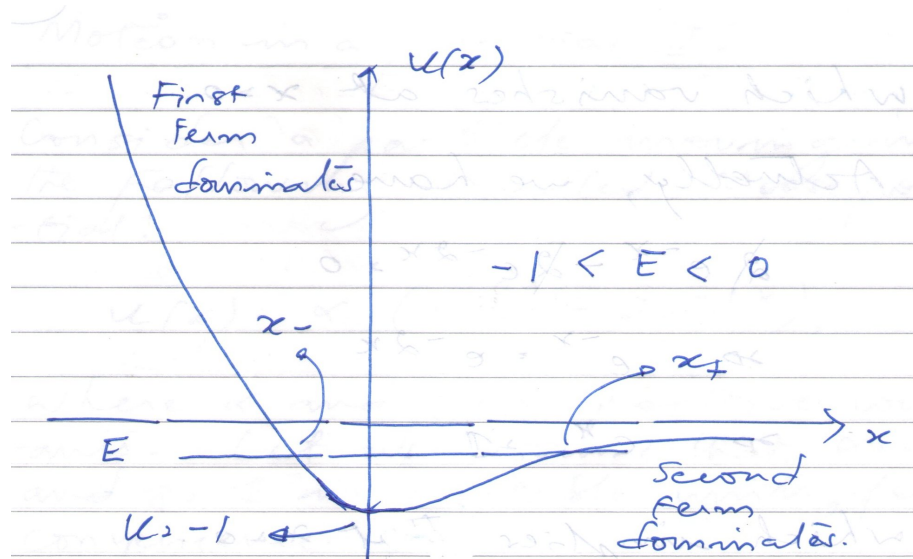 U(x)
First
term
dominates
-1 < E < 0
x-
x+
x
E
Second
term
dominates.
U=-1